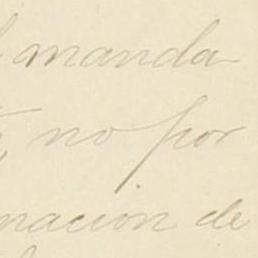 manda
no por
macion de